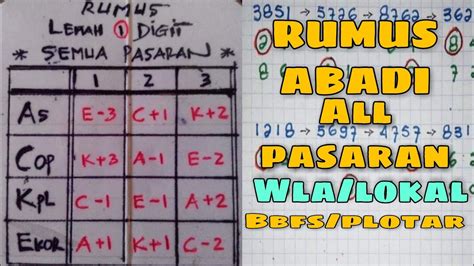 RUMUS
LEMAH 1 DIGIT
* SEMUA PASARAN *
1 2 3
AS E-3 C+1 K+2
COP K+3 A-1 E-2
KPL C-1 E-1 A+2
EKOR A+1 K+1 C-2
3851 5726
RUMUS
ABADI
ALL
PASARAN
WLA/LOKAL
BBFS/PLOTAR
1218 → 5697 → 4757 → 831